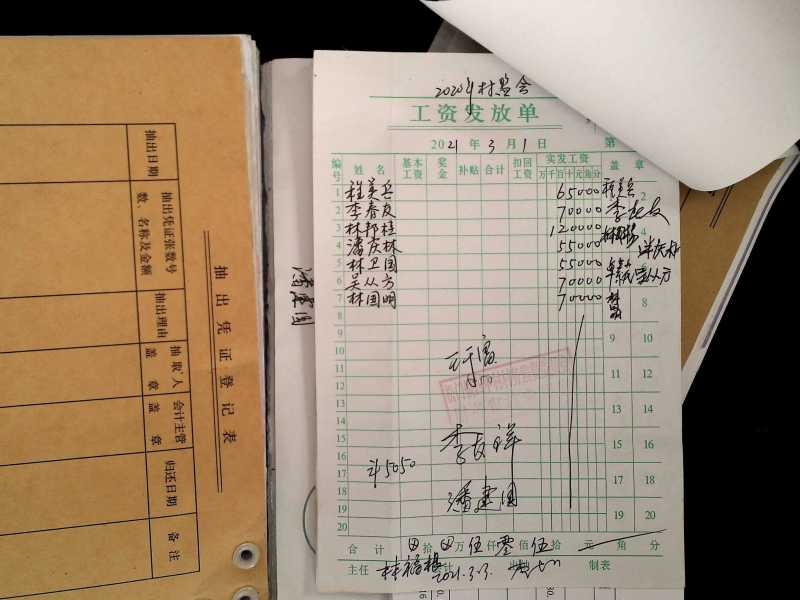 2020年村监会
工资发放单
2021年3月1日 第
编号 姓名 基本工资 奖金 补贴 合计 扣回工资 实发工资 盖章
万千百十元角分
1 程美兵 65000 2
2 李春友 70000 李春友
3 林邦柱 120000 4
4 潘庆林 55000
5 林卫国 55000 6
6 吴从方 70000 吴从方
7 林国明 70000 8
8
9 9 10
10
11 11 12
12
13 13 14
14
15 李友祥 15 16
16
17 计5050 17 18
18 潘建国
19 19 20
20
合计 拾 万伍仟零佰伍拾 元 角 分
主任 会计 2021.3.3. 出纳 制表
潘建国
抽出凭证登记表
抽出日期
抽出凭证张数号数、名称及金额
抽出理由
抽取人盖章
会计主管盖章
归还日期
备注